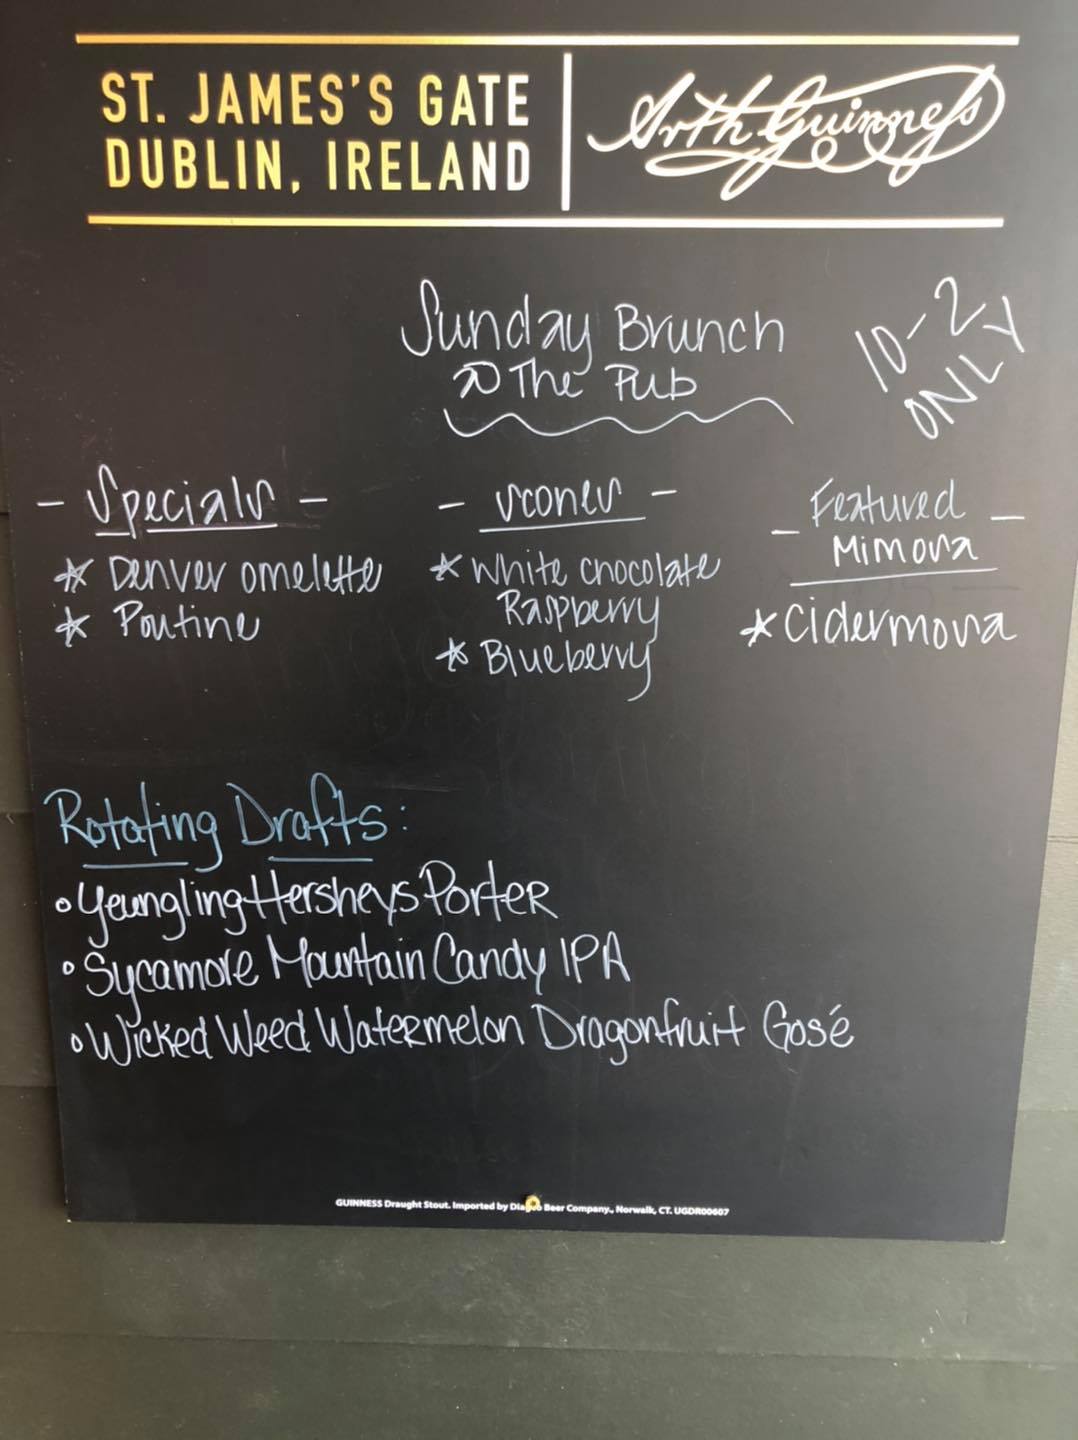 ST. JAMES'S GATE
DUBLIN, IRELAND
Arth Guinness
Sunday Brunch
@ The Pub
10-2
ONLY
- Specials -
* Denver omelette
* Poutine
- Scones -
* White chocolate
Raspberry
* Blueberry
- Featured -
Mimosa
* Cidermosa
Rotating Drafts:
• Yeungling Hersheys Porter
• Sycamore Mountain Candy IPA
• Wicked Weed Watermelon Dragonfruit Gosé
GUINNESS Draught Stout. Imported by Diageo Beer Company., Norwalk, CT. UGDR00607